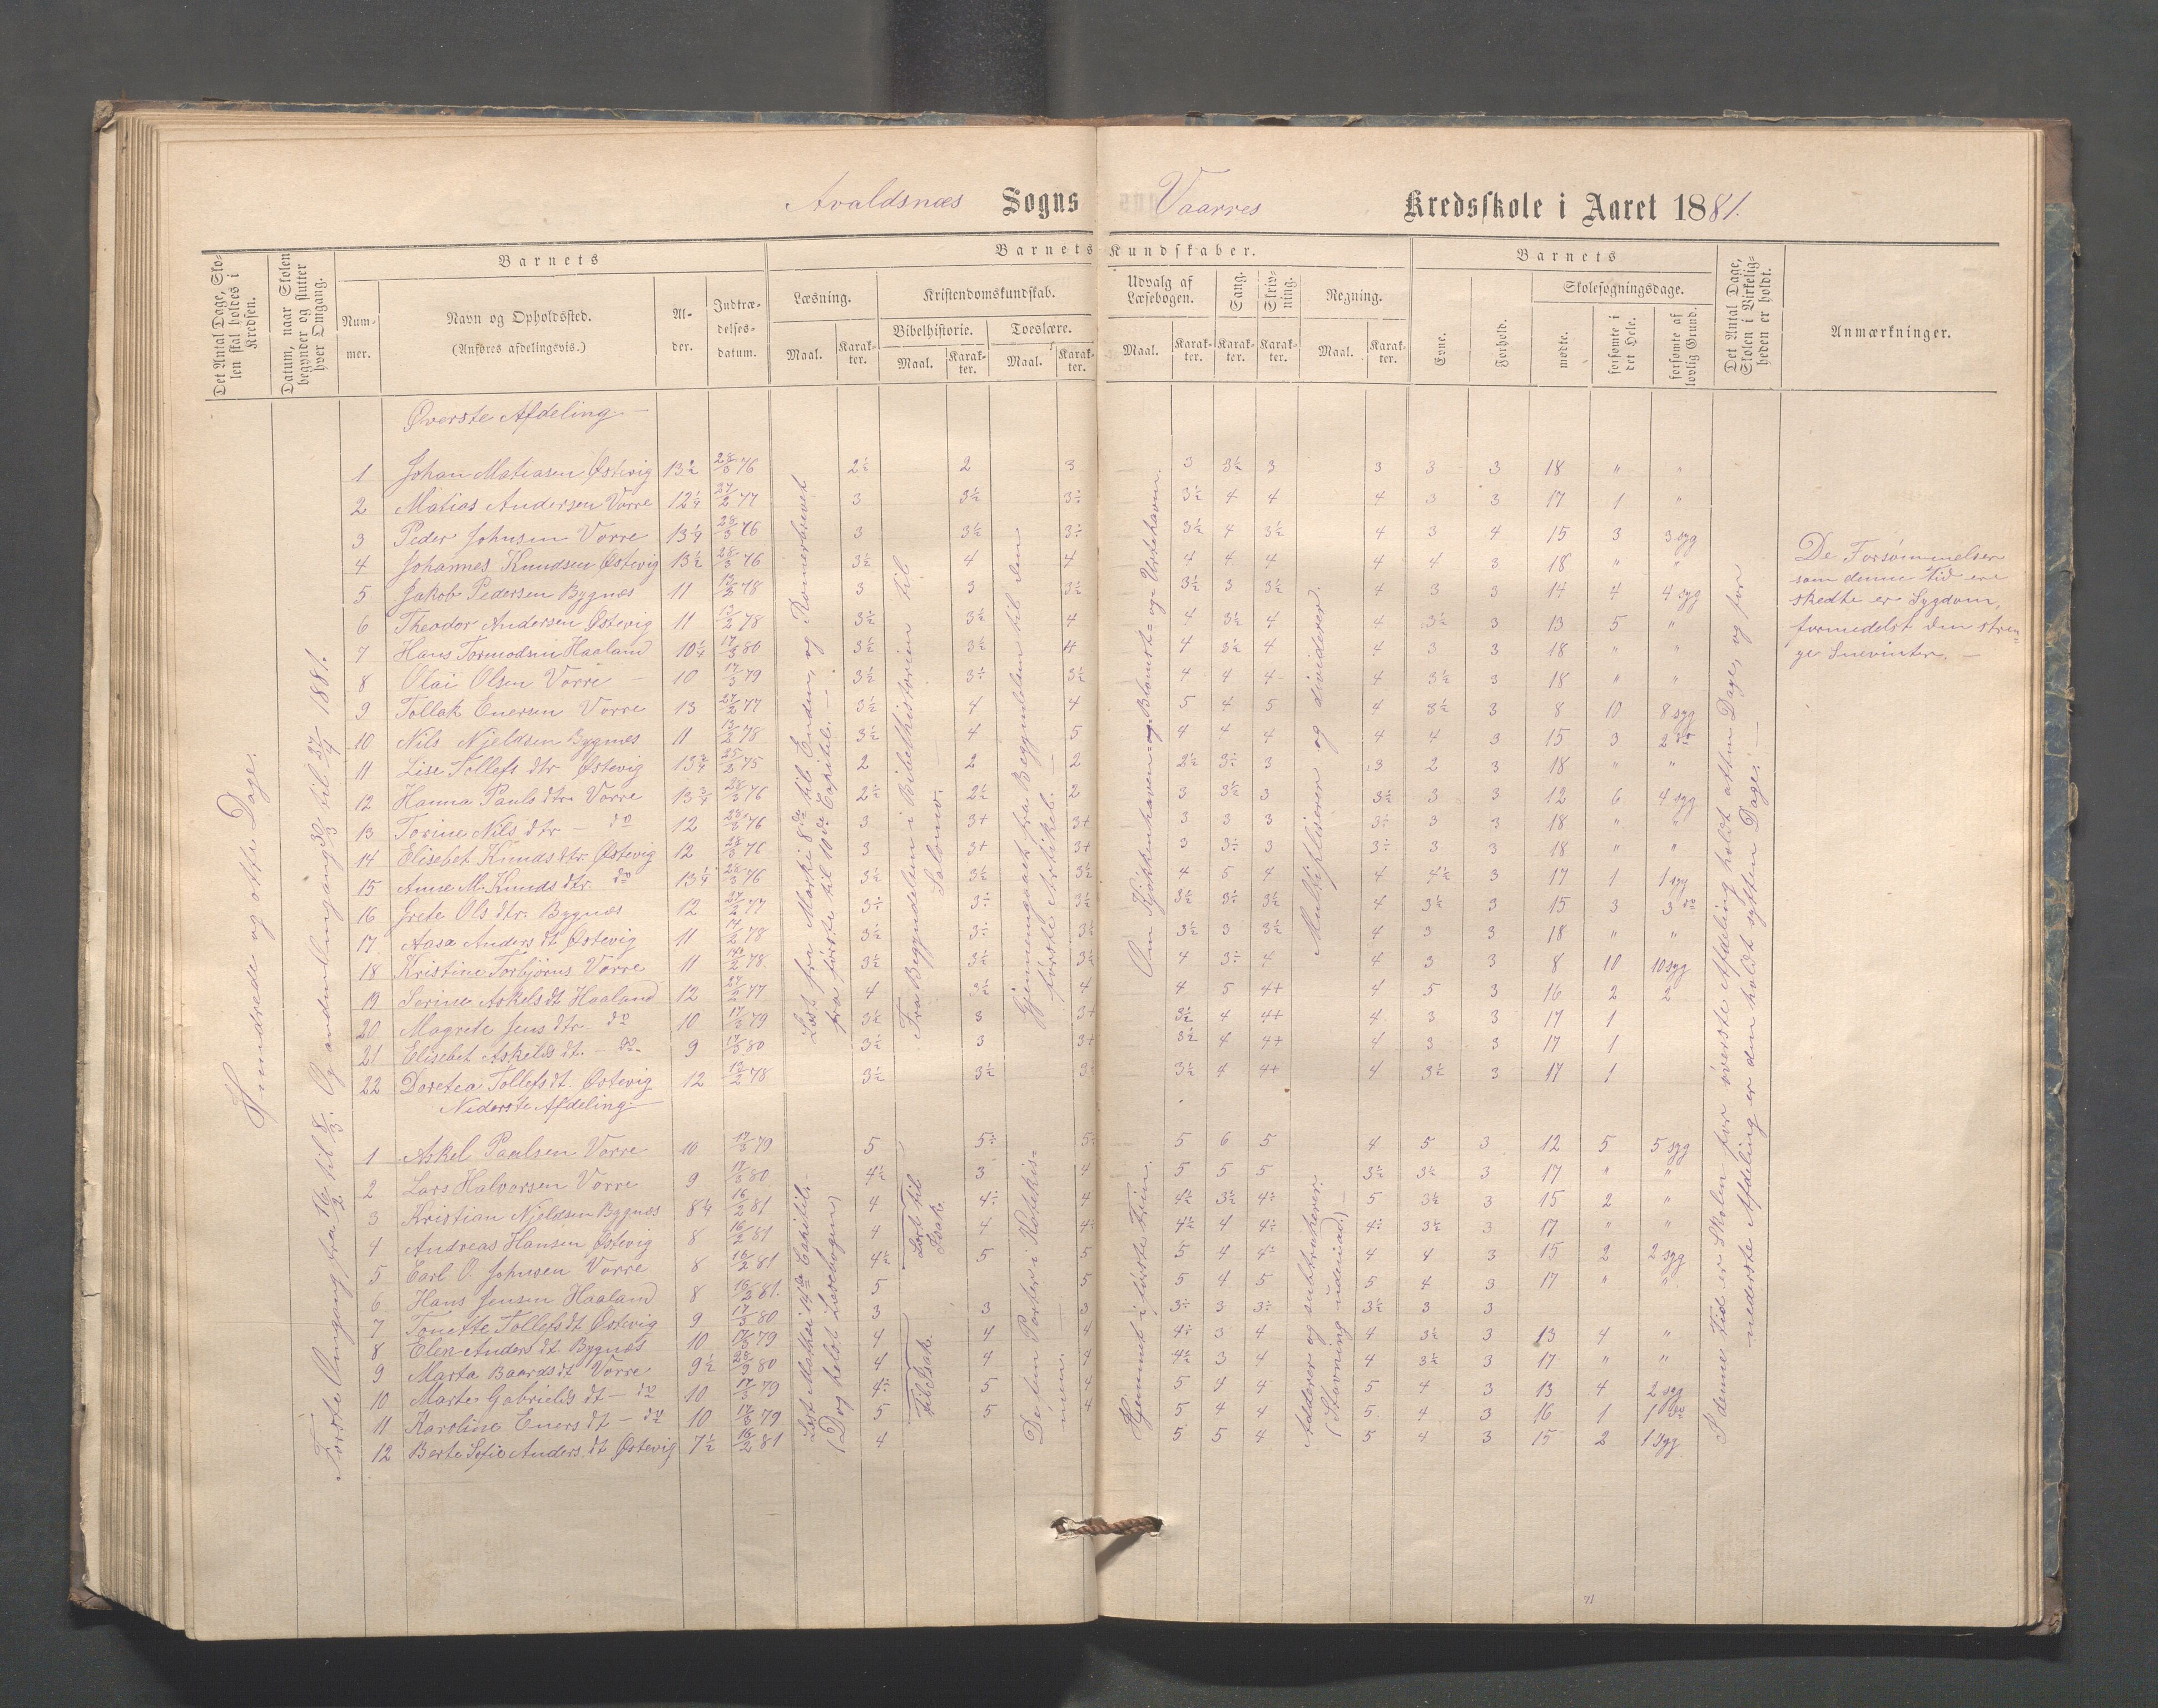 Avaldsnæs Sogns Vaarres Kredsskole i Aaret 1881.
Det Antal Dage, Skolen skal holdes i Kredsen.
Datum, naar Skolen begynder og slutter hver Omgang.
Barnets
Nummer.
Navn og Opholdssted.
(Anføres afdelingsvis.)
Alder.
Indtrædelsesdatum.
Barnets Kundskaber.
Læsning.
Maal. Karakter.
Kristendomskundskab.
Bibelhistorie.
Maal. Karakter.
Troeslære.
Maal. Karakter.
Udvalg af Læsebogen.
Maal. Karakter.
Sang.
Karakter.
Skrivning.
Karakter.
Regning.
Maal. Karakter.
Barnets
Evne.
Forhold.
Skolesøgningsdage.
mødte.
forsømte i det Hele.
forsømte af lovlig Grund.
Det Antal Dage, Skolen i Virkeligheden er holdt.
Anmærkninger.
Hundrede og otte Dage.
Første Omgang fra 16/2 til 8/3. Og anden Omgang 30/3 til 27/4 1881.
Øverste Afdeling
1 Johan Matiasen Østevig 13½ 28/3 76 2½ 2 3 3 3½ 3 3 3 3 18 " "
2 Matias Andersen Vorre 12¼ 27/2 77 3 3½ 3½ 3½ 4 4 4 3 3 17 1 "
3 Peder Johnsen Vorre 13¼ 28/3 76 3 3½ 3÷ 3½ 4 3½ 4 3 4 15 3 3 syg
4 Johannes Knudsen Østevig 13½ 28/3 76 3½ 4 4 4 4 4 4 4 3 18 " "
5 Jakob Pedersen Bygnes 11 13/2 78 3 3 3½ 3½ 3 3½ 4 3 3 14 4 4 syg
6 Theodor Andersen Østevig 11 13/2 78 3½ 3½ 4 4 3½ 4 4 3½ 3 13 5 "
7 Hans Tormodsen Haaland 10¼ 17/3 80 3½ 3½ 4 4 3½ 4 4 3 3 18 " "
8 Olai Olsen Vorre 10 17/3 79 3½ 3÷ 3½ 4 4 4 4 3½ 3 18 " "
9 Tollak Enersen Vorre 13 27/2 77 3½ 4 4 5 4 5 4 3½ 3 8 10 8 syg
10 Nils Njeldsen Bygnes 11 13/2 78 3½ 4 5 4 4 4 4 4 3 15 3 2 do
11 Lise Tollefs dtr. Østevig 13¾ 25/3 75 2 2 2 2½ 3÷ 3 3 2 3 18 " "
12 Hanna Pauls dtr. Vorre 13¾ 28/3 76 2½ 2½ 2 3 3½ 3 3½ 3 3 12 6 4 syg
13 Torine Nils dtr — do 12 28/3 76 3 3+ 3+ 3 3 3 3÷ 3 3 18 " "
14 Elisebet Knuds dtr. Østevig 12 28/3 76 3 3+ 3+ 3 3÷ 3 3÷ 3 3 18 " "
15 Anne M. Knuds dtr. do 13¼ 28/3 76 3½ 3½ 3½ 4 5 4 4 4½ 3 17 1 1 syg
16 Grete Ols dtr. Bygnes 12 27/2 77 3÷ 3÷ 3½ 3½ 3÷ 3½ 4 3½ 3 15 3 3 do
17. Aasa Anders dt Østevig 11 17/2 78 3½ 3÷ 3½ 3½ 3 3½ 4 3 3 18 " "
18 Kristine Torbjørns Vorre 11 17/2 78. 3½ 3½ 3½ 4 3÷ 4 4 3 3 8 10 10 syg
19 Serine Askels dt Haaland 12 27/2 77 4 3½ 4 4 5 4+ 4 5 3 16 2 2
20 Magrete Jens dtr — do 10 17/3 79 3½ 3 3+ 3½ 4 4+ 4 3 3 17 1
21 Elisebet Askelds dt. — do 9 17/3 80 3½ 3 3+ 3½ 4 4+ 4 3 3 17 1
22 Doretea Tollefs dt. Østevig 12 13/2 78 3½ 3½ 3½ 3½ 4 4+ 4 3½ 3 17 1
Nederste Afdeling.
1 Askel Paulsen Vorre 10 17/3 79 5 5÷ 5÷ 5 6 5 4 5 3 12 5 5 syg
2 Lars Halvorsen Vorre 9 17/3 80. 4½ 3 4 5 5 5 3½ 3½ 3 17 " "
3 Kristian Njeldsen Bygnes 8¼ 16/2 81 4 4÷ 4 4½ 3½ 4÷ 5 3½ 3 15 2 "
4 Andreas Hansen Østevig 8 16/2 81 4 4 4÷ 4½ 4 4÷ 4÷ 3½ 3 17 " "
5 Carl O. Johnsen Vorre 8 16/2 81 4½ 5 5 5 4 4÷ 4 4 3 15 2 2 syg
6 Hans Jensen Haaland 8 16/2 81. 5 5 5 4 5 5 4 3 17 " "
7 Tonette Tollefs dt Østevig 9 17/3 80 3 3 3 3÷ 3 3÷ 3½ 3 3
8 Elen Anders dt Bygnes 10 17/3 79 4 4 4 4÷ 3 4 4 3½ 3 13 4 "
9 Marta Baards dt Vorre 9½ 28/9 80 4 4 4 4½ 3 4 4 3½ 3 17 " "
10 Marte Gabriels dt — do 10 17/3 79 4÷ 5 4 5 4 4 5 4 3 13 4 2 syg
11 Karoline Eners dt — do 10 17/3 79 5 5 4 5 4 4 5 4 3 16 1 1 do
12 Berte Sofie Anders. dt Østevig 7½ 16/2 81 4 5 5 4 5 4 3 15 2 1 syg
Læst fra Marki 8de til Enden, og Romerbrevet
fra første til 10de Capitel. —
Fra Begyndelsen i Bibelhistorien til
Salomo.
Gjennemgaaet fra Begyndelsen til den
første Artikel. —
Om Kjøkkenhaven og Blomst- og Urtehaven.
Multiplicerer og dividerer.
Læst Mathæi 14de Capitel. —
(Dog helst Læsebogen)
Lært til
Isak.
Til Isak.
De fem Parter i Katekis-
men. —
Hjemmet i første Trin.
Adderer og subtraherer.
(Stavning udenad.)
I denne Tid er Skolen for øverste Afdeling holdt atten Dage, og for
nederste Afdeling er den holdt sytten Dage. —
De Forsømmelser
som denne Tid ere
skedte er Sygdom,
formedelst den stren-
ge Snevinter. —